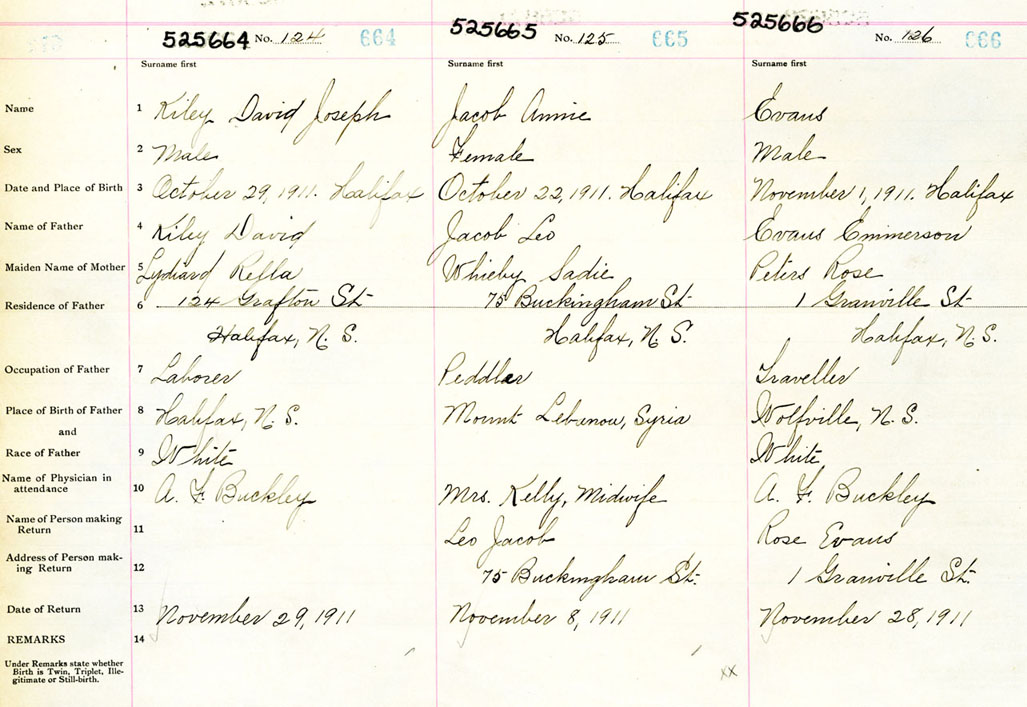 525664 No. 124 664
525665 No. 125 665
525666 No. 126 666
Surname first Surname first Surname first
Name 1 Kiley David Joseph Jacob Annie Evans
Sex 2 Male Female Male
Date and Place of Birth 3 October 29, 1911. Halifax October 22, 1911. Halifax November 1, 1911. Halifax
Name of Father 4 Kiley David Jacob Leo Evans Emmerson
Maiden Name of Mother 5 Lydiard Rella Whieby Sadie Peters Rose
Residence of Father 6 124 Grafton St. 75 Buckingham St. 1 Granville St.
Halifax, N. S. Halifax, N. S. Halifax, N. S.
Occupation of Father 7 Laborer Peddler Traveller
Place of Birth of Father 8 Halifax, N. S. Mount Lebanon, Syria Wolfville, N. S.
and
Race of Father 9 White White
Name of Physician in
attendance 10 A. F. Buckley Mrs. Kelly, Midwife A. F. Buckley
Name of Person making
Return 11 Leo Jacob Rose Evans
Address of Person mak-
ing Return 12 75 Buckingham St. 1 Granville St.
Date of Return 13 November 29, 1911 November 8, 1911 November 28, 1911
REMARKS 14
Under Remarks state whether
Birth is Twin, Triplet, Ille-
gitimate or Still-birth.
xx